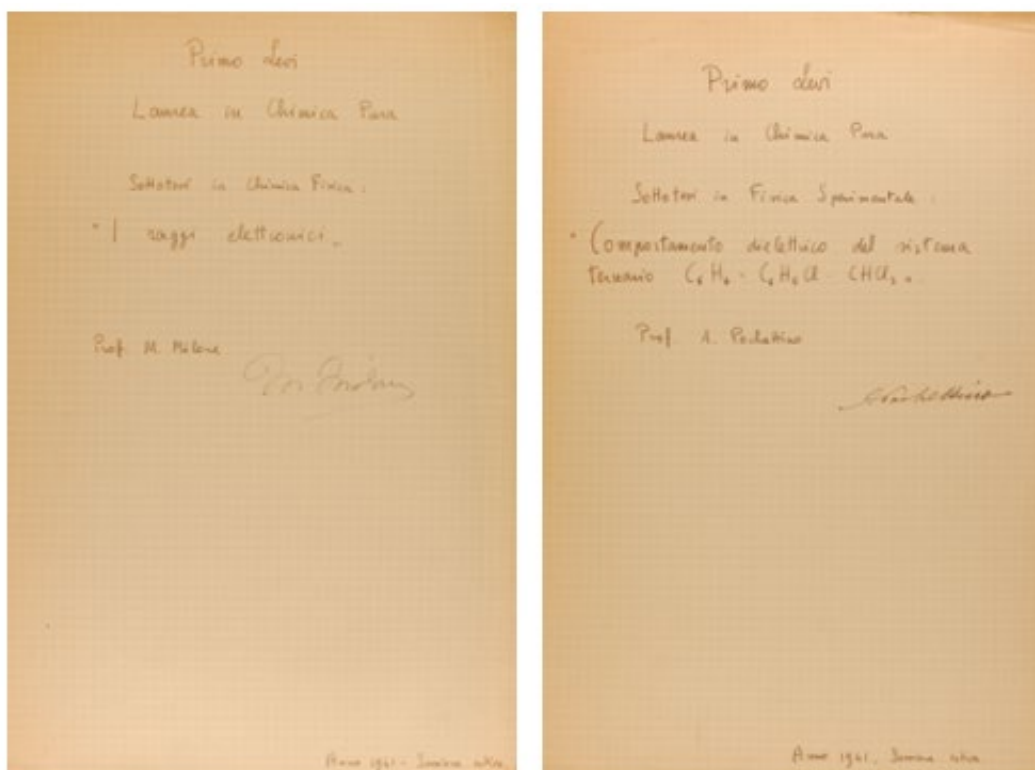 Primo Levi
Laurea in Chimica Pura
Sottotesi in Chimica Fisica:
" I raggi elettronici.
Prof. M. Milone
Primo Levi
Laurea in Chimica Pura
Sottotesi in Fisica Sperimentale:
" Comportamento dielettrico del sistema
ternario C₆H₆ - C₆H₅Cl - CHCl₃.
Prof. A. Pochettino
Anno 1941 - Sessione estiva
Anno 1941. Sessione estiva